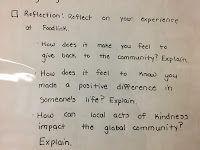 Reflection: Reflect on your experience
at Foodlink.
· How does it make you feel to
give back to the community? Explain.
· How does it feel to know you
made a positive difference in
someone's life? Explain.
· How can local acts of kindness
impact the global community?
Explain.